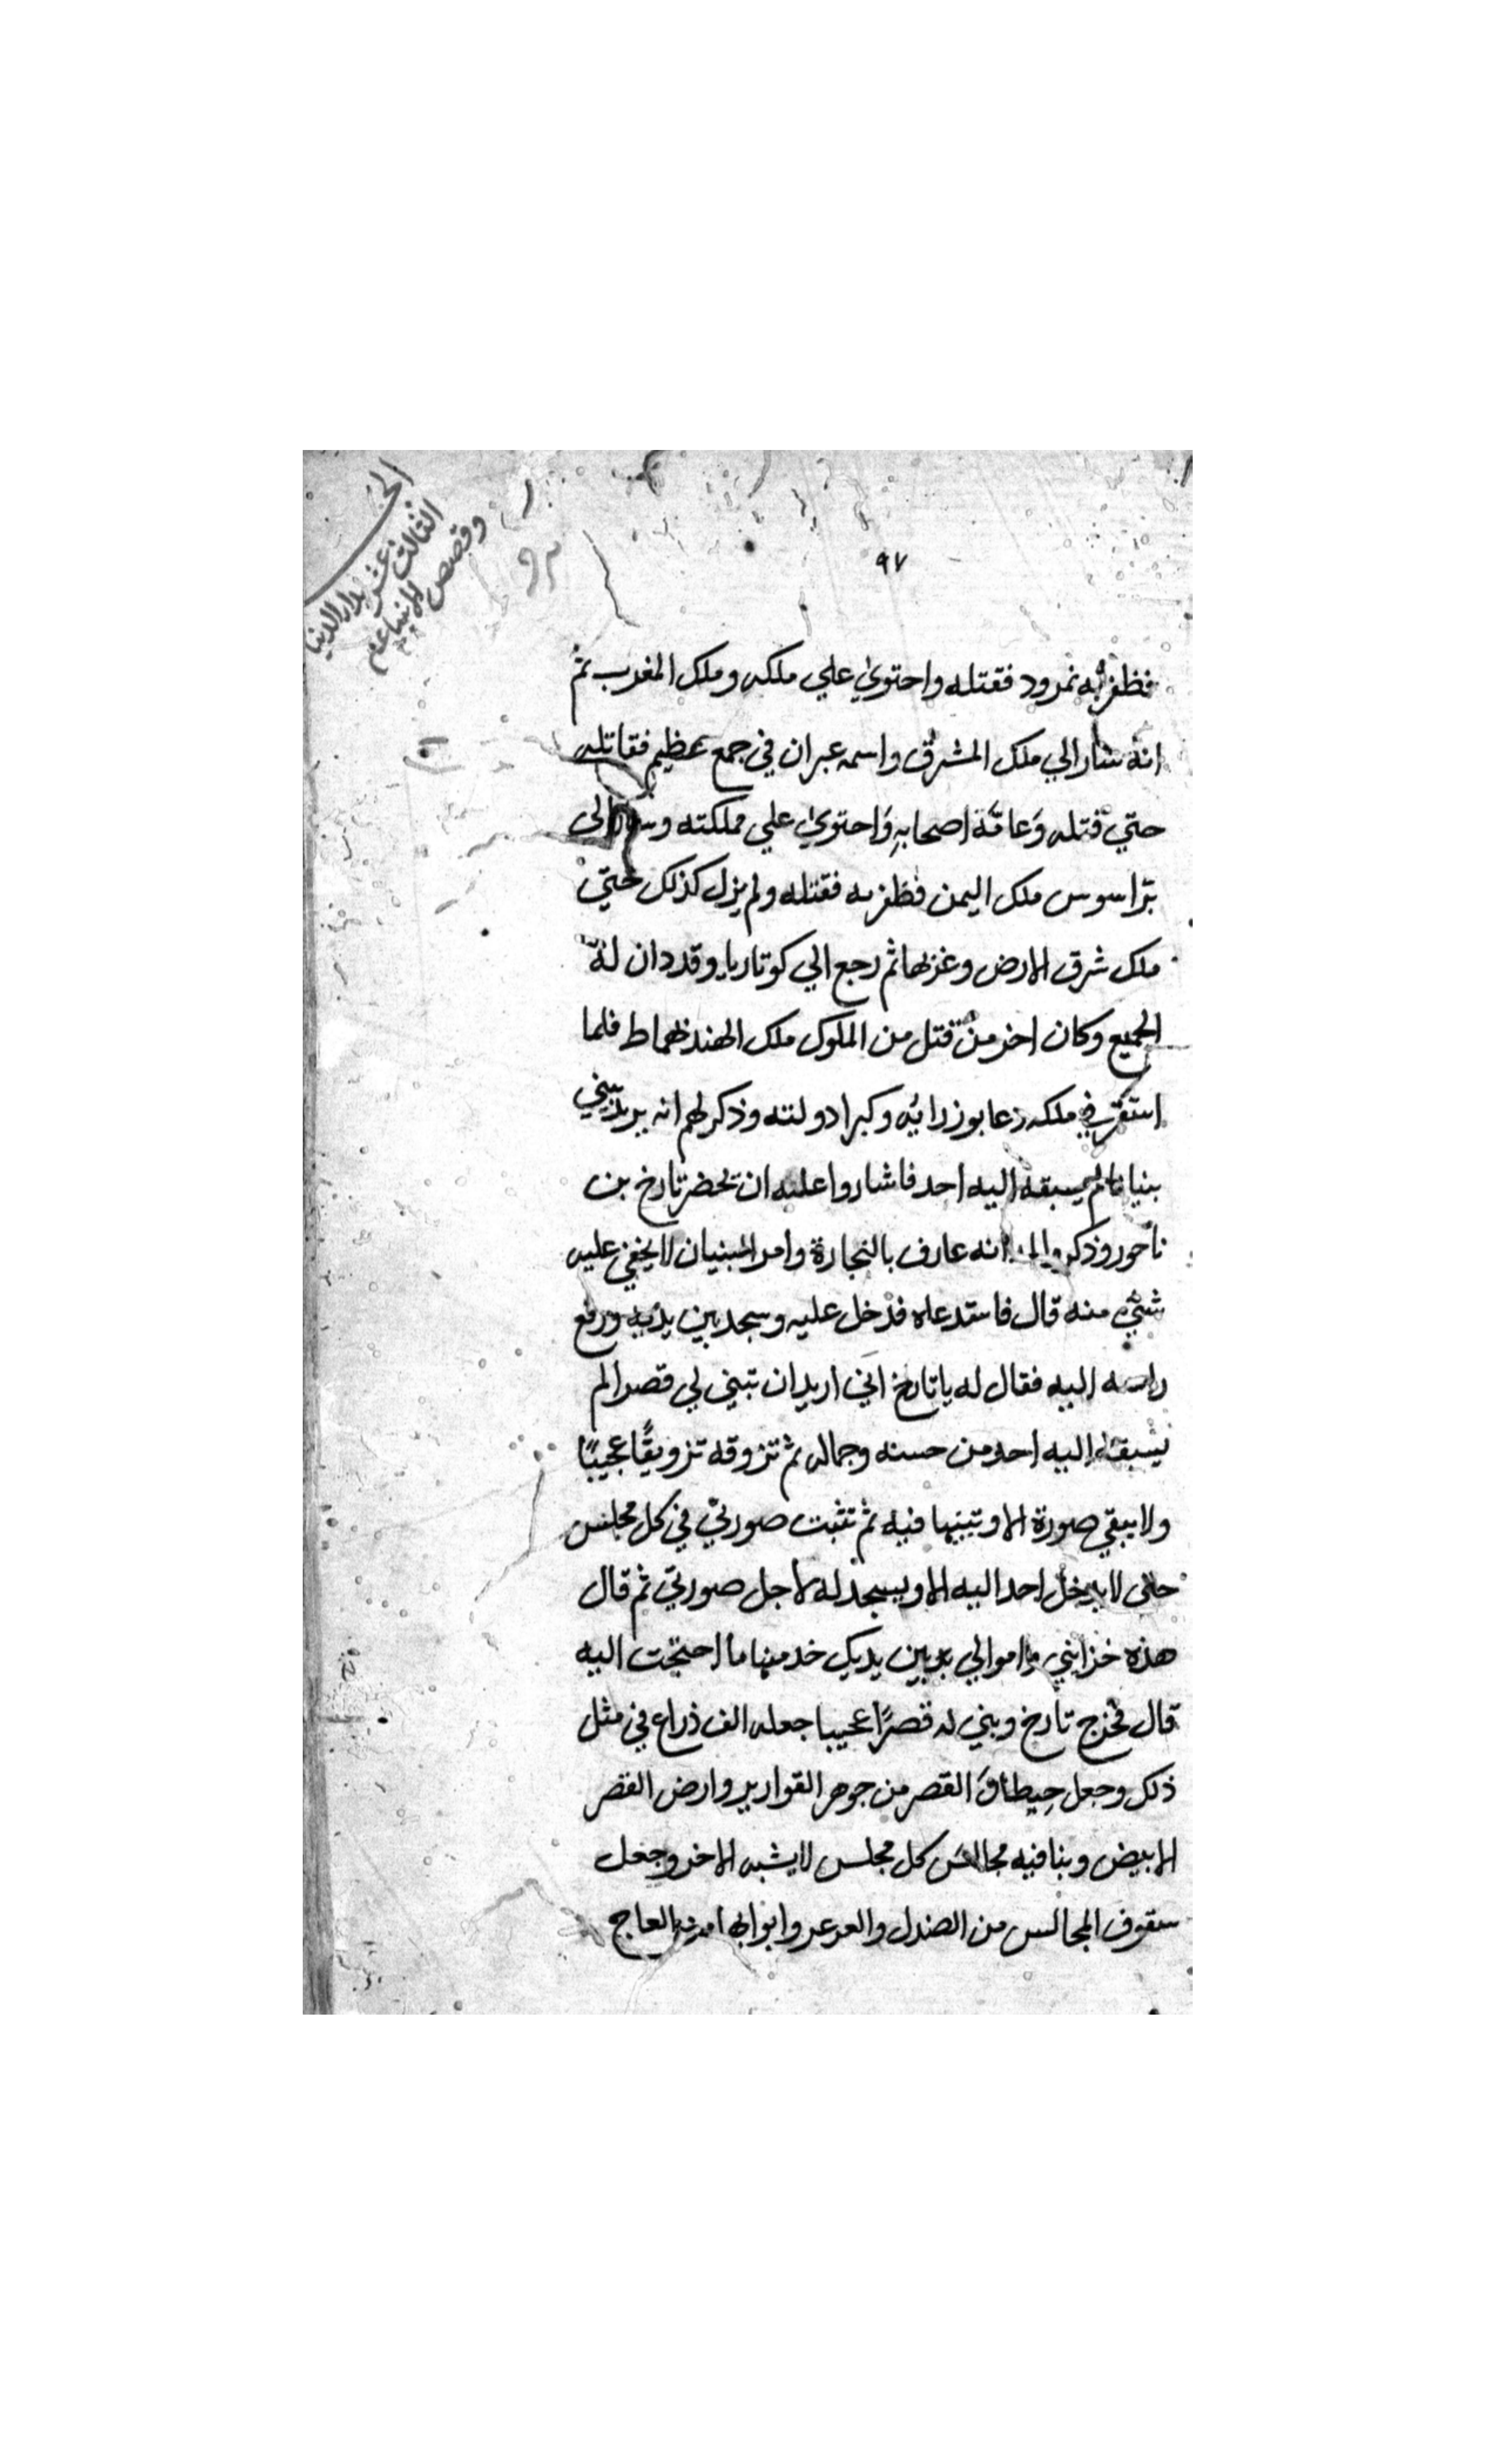 الجز
الثالث عشر بدار الدنيا
وقصص الانبياء عم
٩٧
فظفر به نمرود فقتله واحتوي علي ملكه وملك المغرب ثم
انه سار الي ملك المشرق واسمه عبران في جمع عظيم فقاتله
حتي قتله وَعامّة اصحابهِ وَاحتوي علي مملكته وسار الى
براسوس ملك اليمن فظفر به فقتله ولم يزل كذلك حتيّ
ملك شرق الارض وغربها ثم رجع الي كوتاريا وقد دان لهّ
الجميع وكان اخر من قتل من الملوك ملك الهند ظماط فلما
استقر في ملكه دعا بوزرايه وكبرا دولته وذكر لهم انه يريد يبني
بنيانا لم يسبقه اليه احد فاشاروا عليه ان يحضر تارخ بن
ناحور وذكروا له انه عارف بالنجارة وامر البنيان لا يخفي عليه
شيء منه قال فاستدعاه فدخل عليه وسجد بين يديه ورفع
راسه اليه فقال له يا تارخ اني اريد ان تبني لي قصرا لم
يسبقه اليه احد من حسنه وجماله ثم تزوقه تزويقًا عجيبًا
ولا يبقي صورة الا وتبينها فيه ثم تثبت صورتي في كل مجلس
حتى لا يدخل احد اليه الا ويسجد له لاجل صورتي ثم قال
هذه خزايني واموالي بين يديك خد منها ما احتجت اليه
قال فخرج تارخ وبني له قصرًا عجيبا جعله الف ذراع في مثل
ذلك وجعل حِيطانَ القصر من جوهر القوارير وارض القصر
الابيض وبنا فيه مجالس كل مجلس لا يشبه الاخر وجعل
سقوف المجالس من الصندل والعرعر وابوابها من العاج